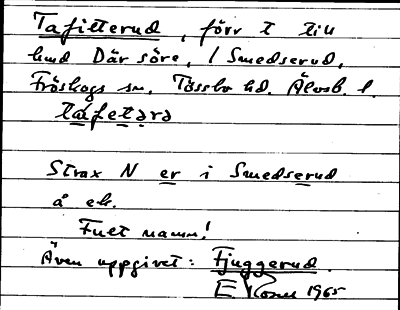 Tafitterud, förr t till
hmd Där söre, / Smedserud,
Fröskogs sn. Tössbo hd. Älvsb. l.
tafetərə
Strax N er i Smedserud
å ek.
Fult namn!
Även uppgivet: Fjuggerud.
E 1965